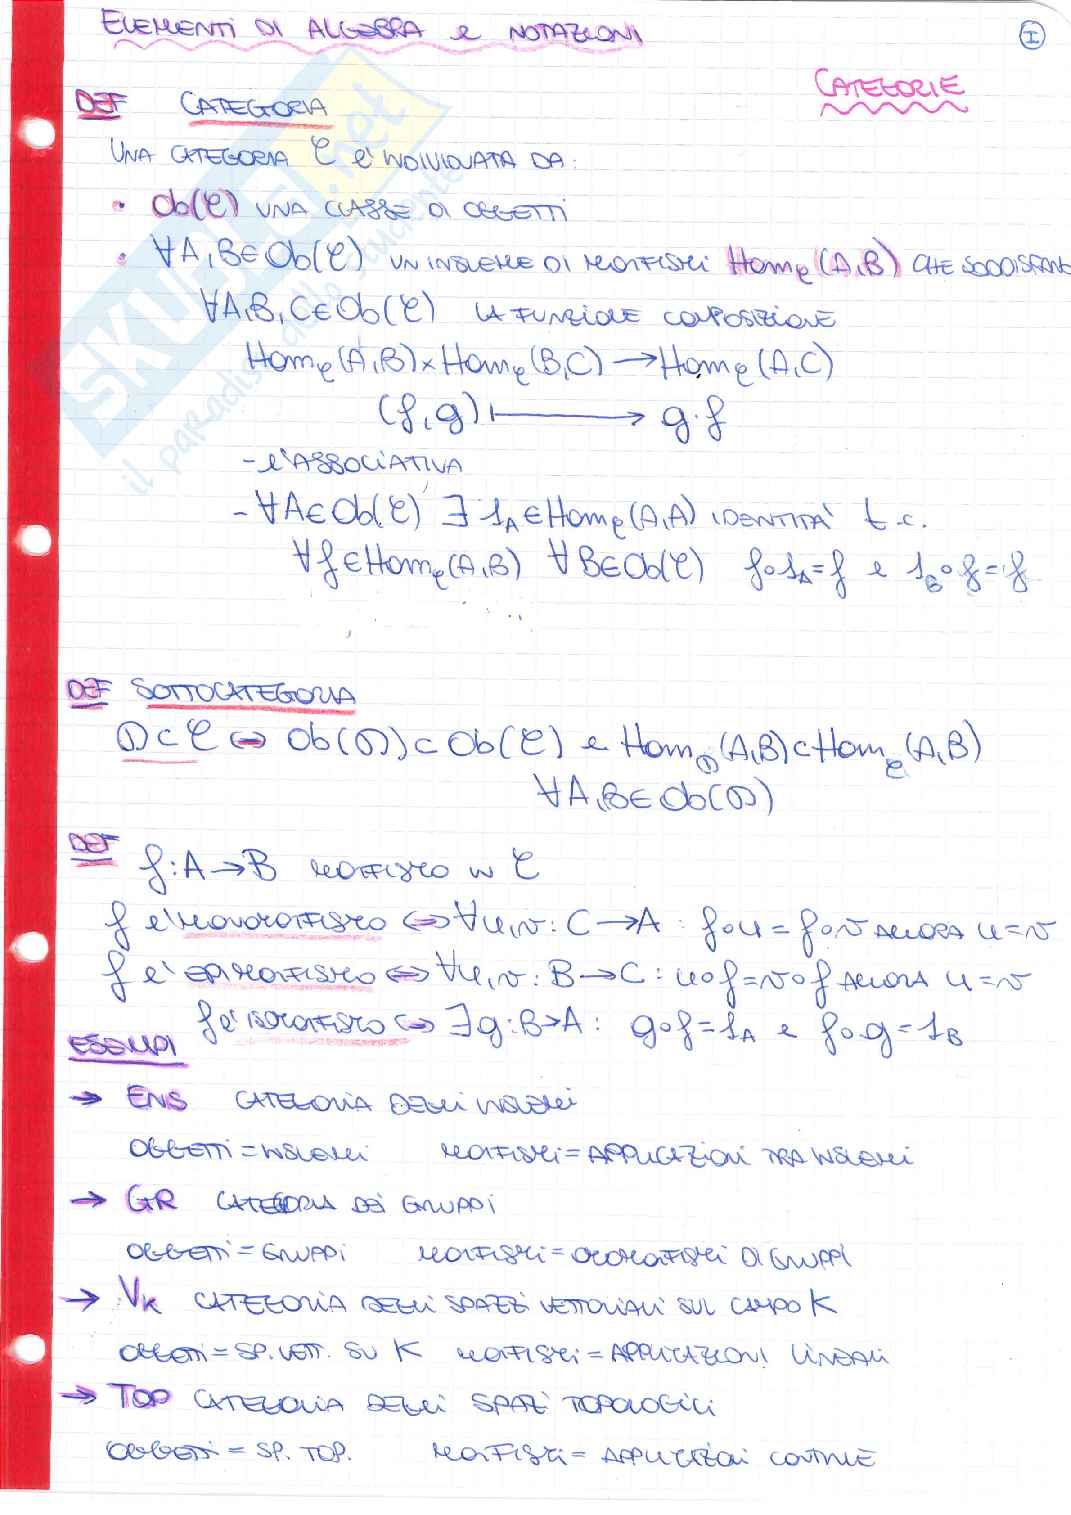 ELEMENTI DI ALGEBRA e NOTAZIONI
I
CATEGORIE
DEF CATEGORIA
UNA CATEGORIA 𝒞 E' INDIVIDUATA DA:
• Ob(𝒞) UNA CLASSE DI OGGETTI
• ∀A,B∈Ob(𝒞) UN INSIEME DI MORFISMI Hom𝒞(A,B) CHE SODDISFANO
∀A,B,C∈Ob(𝒞) LA FUNZIONE COMPOSIZIONE
Hom𝒞(A,B)×Hom𝒞(B,C)→Hom𝒞(A,C)
(f,g)⟼g·f
- E' ASSOCIATIVA
- ∀A∈Ob(𝒞) ∃ 1_A∈Hom𝒞(A,A) IDENTITA' t.c.
∀f∈Hom𝒞(A,B) ∀B∈Ob(𝒞) f∘1_A=f e 1_B∘f=f
DEF SOTTOCATEGORIA
𝒟⊂𝒞 ⇔ Ob(𝒟)⊂Ob(𝒞) e Hom𝒟(A,B)⊂Hom𝒞(A,B)
∀A,B∈Ob(𝒟)
DEF
f:A→B MORFISMO IN 𝒞
f e' MONOMORFISMO ⇔ ∀u,v:C→A : f∘u=f∘v ALLORA u=v
f e' EPIMORFISMO ⇔ ∀u,v:B→C : u∘f=v∘f ALLORA u=v
f e' ISOMORFISMO ⇔ ∃g:B→A : g∘f=1_A e f∘g=1_B
ESEMPI
→ ENS CATEGORIA DEGLI INSIEMI
OGGETTI=INSIEMI MORFISMI=APPLICAZIONI TRA INSIEMI
→ GR CATEGORIA DEI GRUPPI
OGGETTI=GRUPPI MORFISMI=OMOMORFISMI DI GRUPPI
→ V_K CATEGORIA DEGLI SPAZI VETTORIALI SUL CAMPO K
OGGETTI=SP.VETT. SU K MORFISMI=APPLICAZIONI LINEARI
→ TOP CATEGORIA DEGLI SPAZI TOPOLOGICI
OGGETTI=SP. TOP. MORFISMI=APPLICAZIONI CONTINUE
SKUOLA.net
il paradiso dello studente